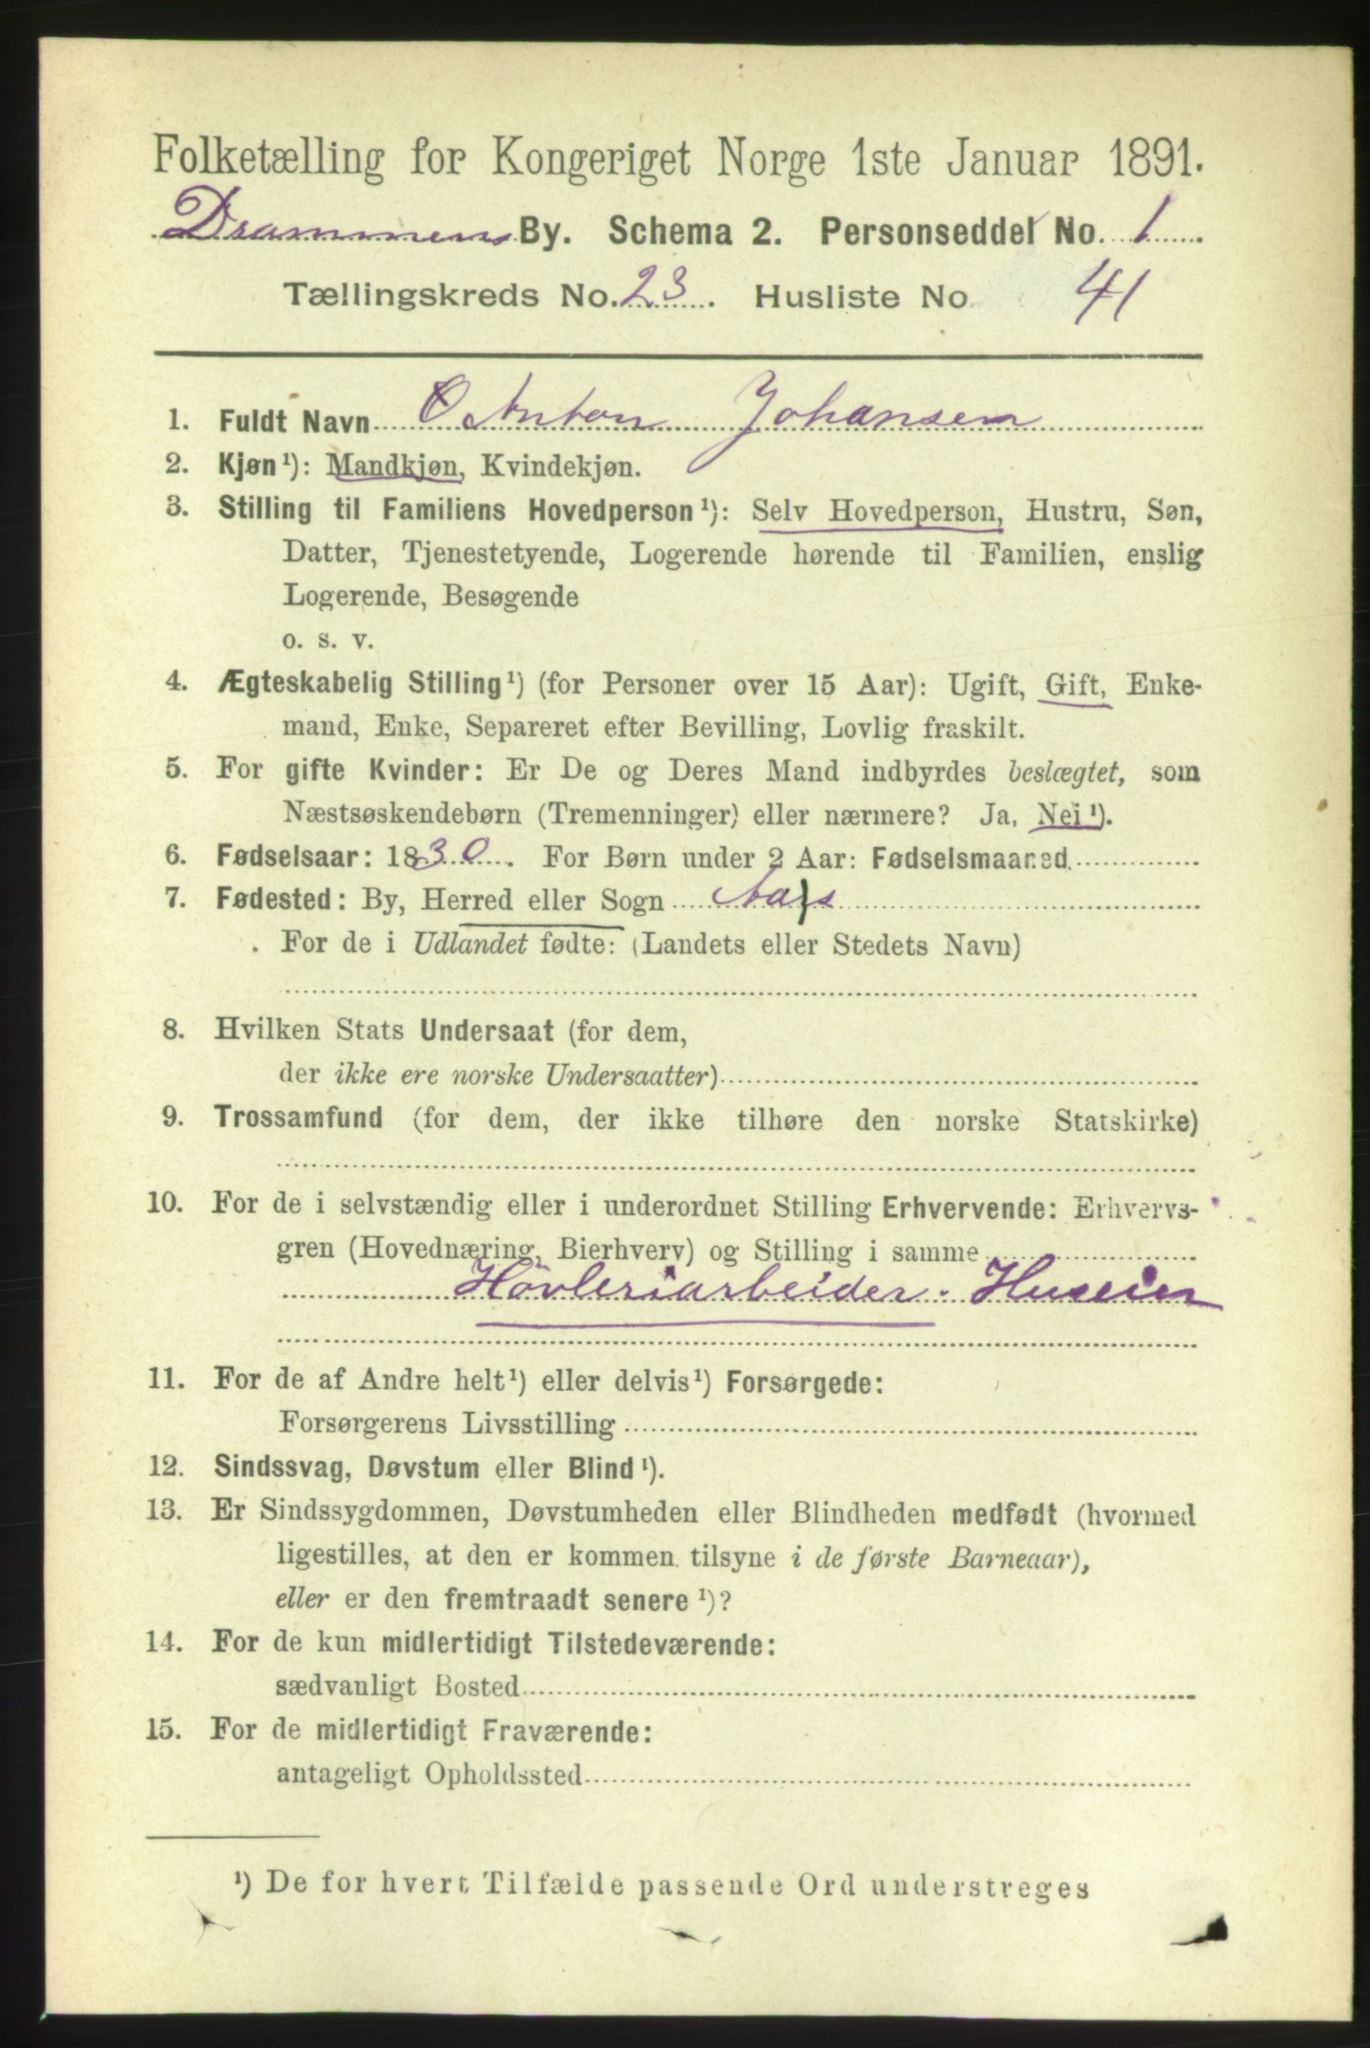 Folketælling for Kongeriget Norge 1ste Januar 1891.
Drammens By. Schema 2. Personseddel No. 1
Tællingskreds No. 23. Husliste No 41
1. Fuldt Navn Anton Johansen
2. Kjøn¹): Mandkjøn, Kvindekjøn.
3. Stilling til Familiens Hovedperson¹): Selv Hovedperson, Hustru, Søn,
Datter, Tjenestetyende, Logerende hørende til Familien, enslig
Logerende, Besøgende
o. s. v.
4. Ægteskabelig Stilling¹) (for Personer over 15 Aar): Ugift, Gift, Enke-
mand, Enke, Separeret efter Bevilling, Lovlig fraskilt.
5. For gifte Kvinder: Er De og Deres Mand indbyrdes beslægtet, som
Næstsøskendebørn (Tremenninger) eller nærmere? Ja, Nei¹).
6. Fødselsaar: 1830. For Børn under 2 Aar: Fødselsmaaned
7. Fødested: By, Herred eller Sogn
For de i Udlandet fødte: (Landets eller Stedets Navn)
8. Hvilken Stats Undersaat (for dem,
der ikke ere norske Undersaatter)
9. Trossamfund (for dem, der ikke tilhøre den norske Statskirke)
10. For de i selvstændig eller i underordnet Stilling Erhvervende: Erhvervs-
gren (Hovednæring, Bierhverv) og Stilling i samme
Høvleriarbeider. Huseier
11. For de af Andre helt¹) eller delvis¹) Forsørgede:
Forsørgerens Livsstilling
12. Sindssvag, Døvstum eller Blind¹).
13. Er Sindssygdommen, Døvstumheden eller Blindheden medfødt (hvormed
ligestilles, at den er kommen tilsyne i de første Barneaar),
eller er den fremtraadt senere¹)?
14. For de kun midlertidigt Tilstedeværende:
sædvanligt Bosted
15. For de midlertidigt Fraværende:
antageligt Opholdssted
¹) De for hvert Tilfælde passende Ord understreges